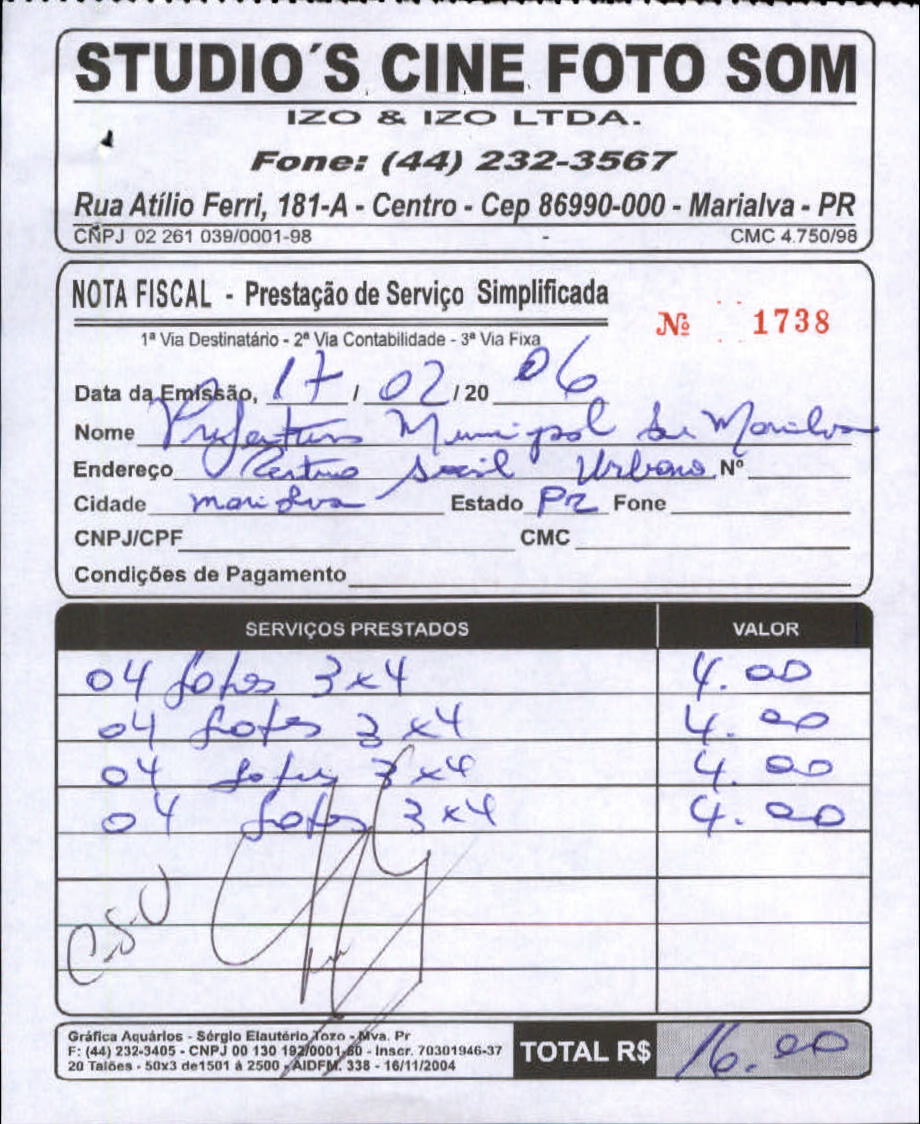 STUDIO´S CINE FOTO SOM
IZO & IZO LTDA.
Fone: (44) 232-3567
Rua Atílio Ferri, 181-A - Centro - Cep 86990-000 - Marialva - PR
CNPJ 02 261 039/0001-98 - CMC 4.750/98
NOTA FISCAL - Prestação de Serviço Simplificada
Nº 1738
1ª Via Destinatário - 2ª Via Contabilidade - 3ª Via Fixa
Data da Emissão, 17 / 02 / 20 06
Nome Prefeitura Municipal de Marialva
Endereço Centro Social Urbano Nº
Cidade Marialva Estado PR Fone
CNPJ/CPF CMC
Condições de Pagamento
SERVIÇOS PRESTADOS VALOR
04 fotos 3x4 4.00
04 fotos 3x4 4.00
04 fotos 3x4 4.00
04 fotos 3x4 4.00
C.S.U
Gráfica Aquários - Sérgio Elautério Tozo - Mva. Pr
F: (44) 232-3405 - CNPJ 00 130 192/0001-60 - Inscr. 70301946-37
20 Talões - 50x3 de1501 à 2500 - AIDFM. 338 - 16/11/2004
TOTAL R$ 16.00